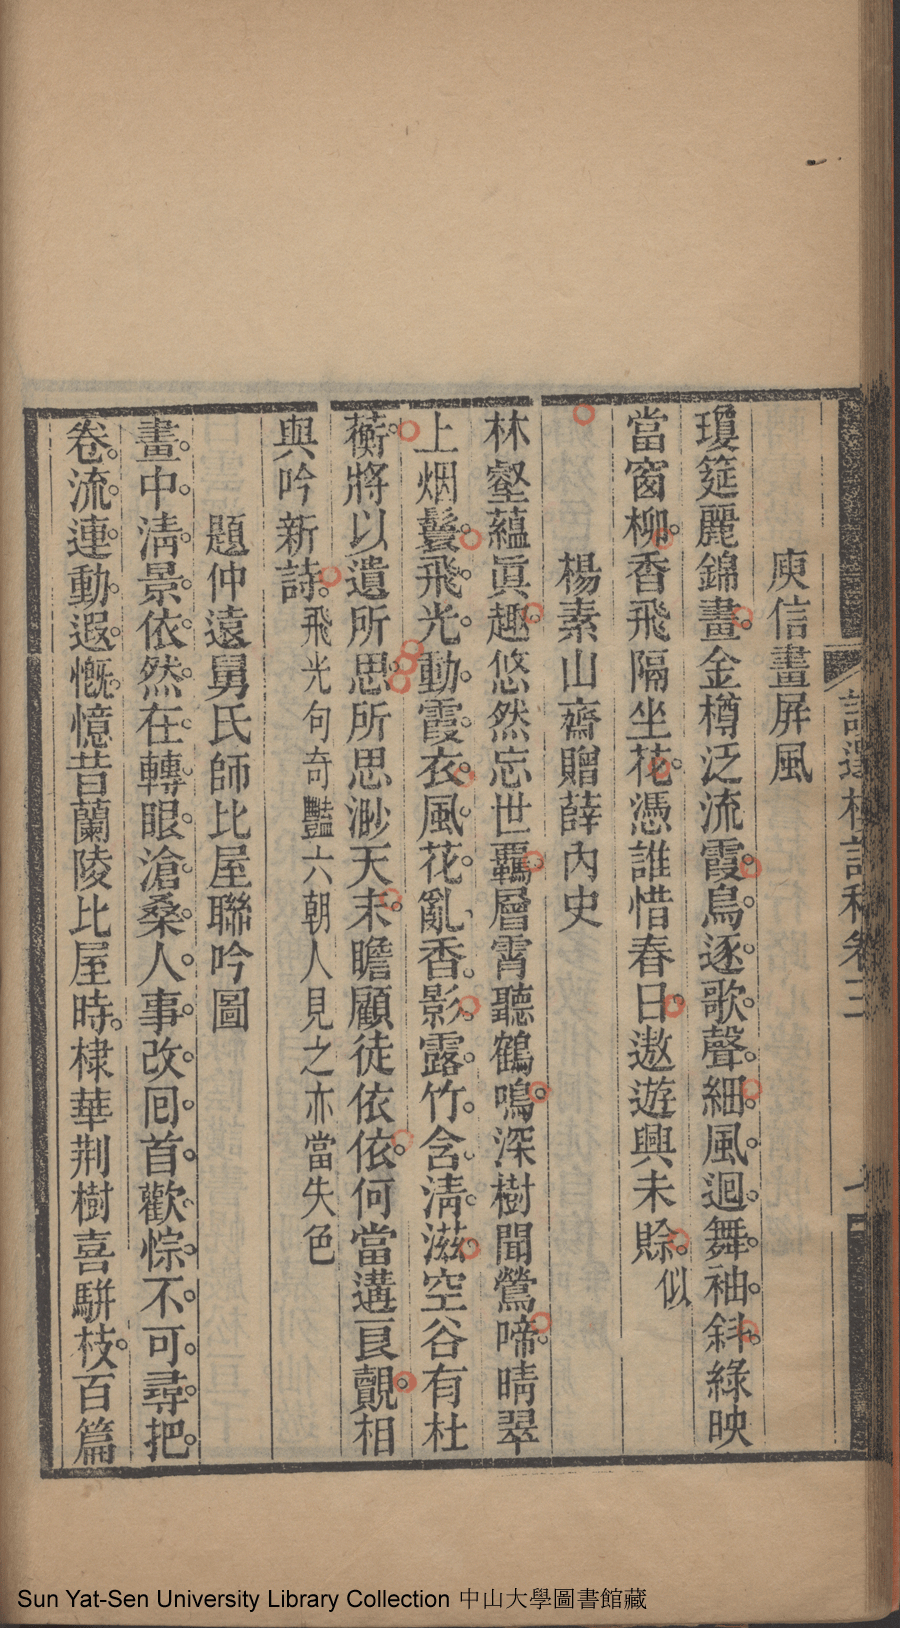 詩選樓詩稿卷三
庾信畫屏風
瓊筵麗錦畫金樽泛流霞鳥逐歌聲細風迴舞袖斜綠映
當窗柳香飛隔坐花憑誰惜春日遨遊興未賒似
楊素山齋贈薛內史
林壑蘊眞趣悠然忘世羈層霄聽鶴鳴深樹聞鶯啼晴翠
上烟鬟飛光動霞衣風花亂香影露竹含淸滋空谷有杜
蘅將以遺所思所思渺天末瞻顧徒依依何當遘良覿相
與吟新詩飛光句奇豔六朝人見之亦當失色
題仲遠舅氏師比屋聯吟圖
畫中淸景依然在轉眼滄桑人事改囘首歡悰不可尋把
卷流連動遐慨憶昔蘭陵比屋時棣華荆樹喜駢枝百篇
Sun Yat-Sen University Library Collection 中山大學圖書館藏